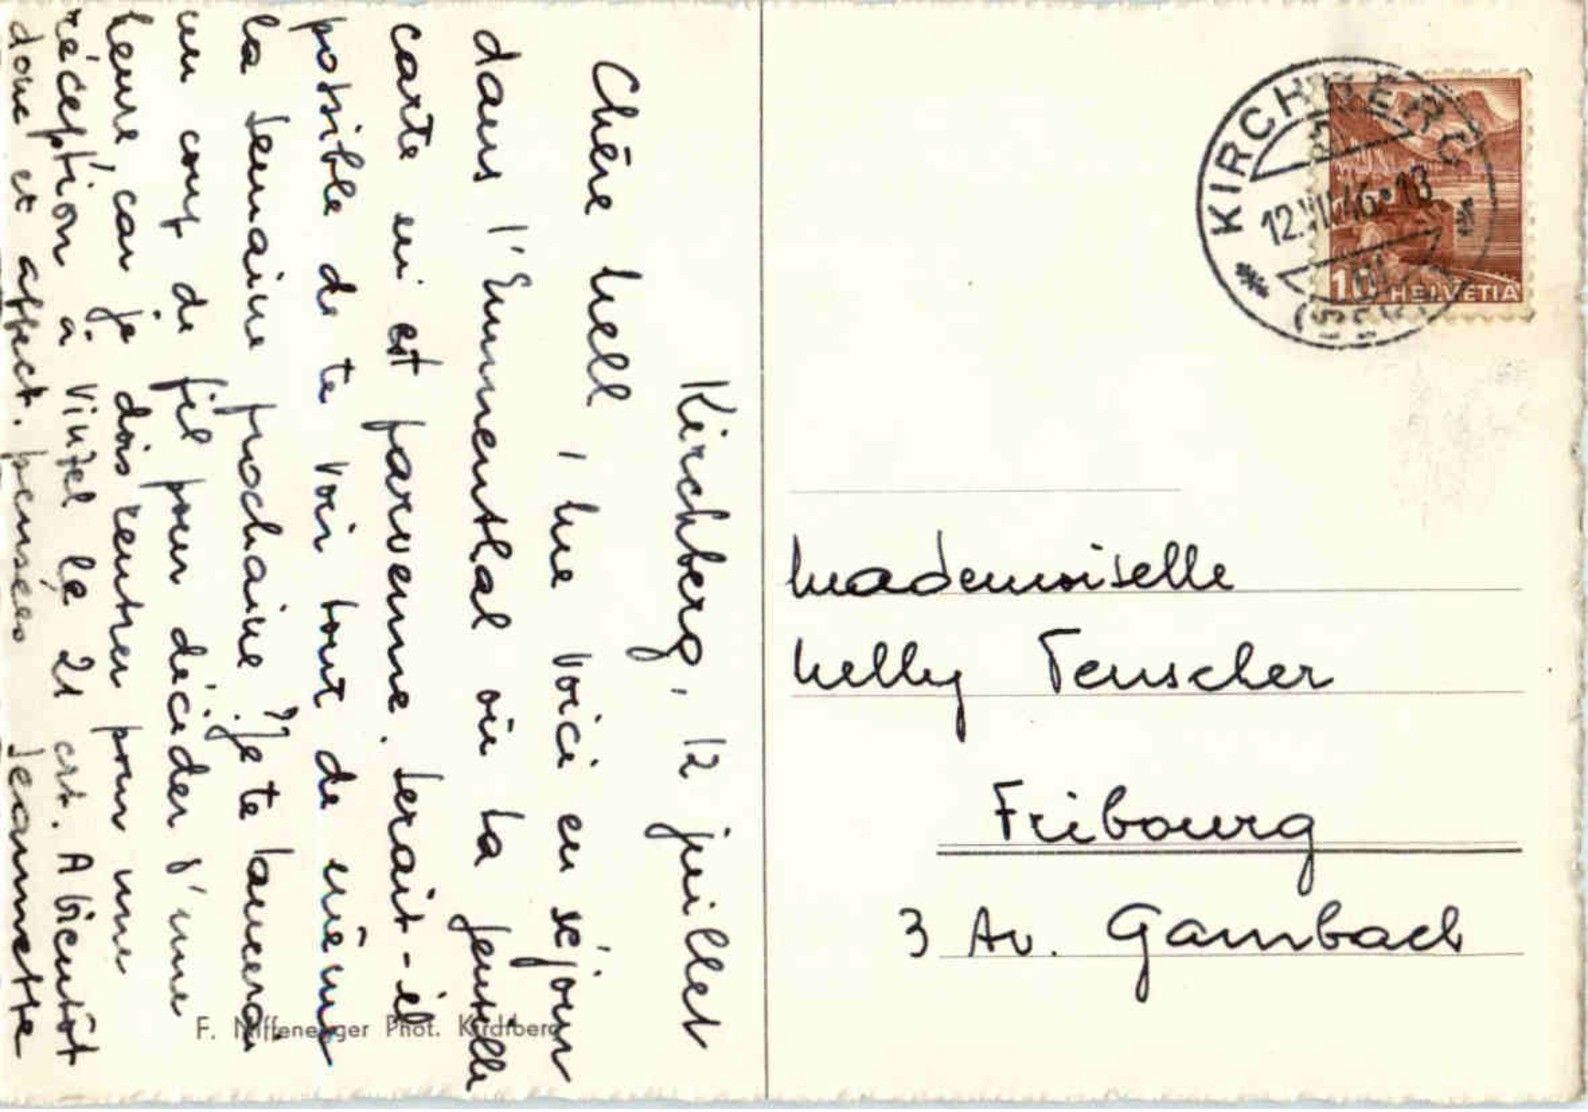 Kirchberg, 12 juillet
Chère Nell, me voici en séjour
dans l'Emmenthal où ta gentille
carte m'est parvenue. Serait-il
possible de te voir tout de même
la semaine prochaine? Je te lancerai
un coup de fil pour décider d'une
heure, car je dois rentrer pour une
réception à Vinzel le 21 crt. A bientôt
donc et affect. pensées Jeannette
F. Niffenegger Phot. Kirchberg
KIRCHBERG
12.VII.46-18
(BERN)
10 HELVETIA
Mademoiselle
Nelly Teuscher
Fribourg
3 Av. Gambach